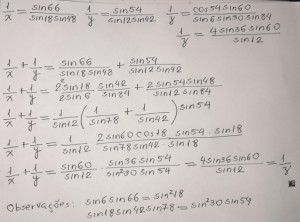 1/x = sin66/sin18sin48   1/y = sin54/sin12sin42   1/y = cos54sin60/sin6sin30sin84
1/y = 4sin36sin60/sin12
1/x + 1/y = sin66/sin18sin48 + sin54/sin12sin42
1/x + 1/y = 2sin18/2sin6 · sin42/sin84 + 2sin54sin48/sin12sin84
1/x + 1/y = 1/sin12 (1/sin78 + 1/sin42) sin54
1/x + 1/y = 1/sin12 · 2sin60cos18/sin78sin42 · sin54·sin18/sin18
1/x + 1/y = sin60/sin12 · sin36sin54/sin²30sin54 = 4sin36sin60/sin12 = 1/y
Observações: sin6sin66 = sin²18
sin18sin42sin78 = sin²30sin54